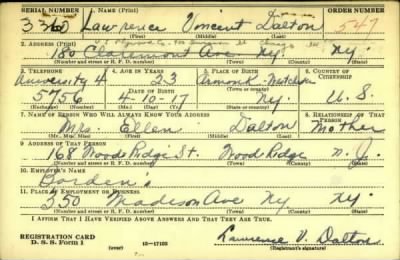 SERIAL NUMBER 1. NAME (Print) ORDER NUMBER (Print)
3360 Lawrence Vincent Dalton 247
(First) (Middle) (Last)
2. ADDRESS (Print)
180 Claremont Ave Ny. Ny.
(Number and street or R. F. D. number) (Town) (County) (State)
3. TELEPHONE 4. AGE IN YEARS 5. PLACE OF BIRTH 6. COUNTRY OF CITIZENSHIP
University 4 23 Armonk
DATE OF BIRTH
5756 4-10-17 Ny. U.S.
(Exchange) (Number) (Mo.) (Day) (Yr.) (State or country)
7. NAME OF PERSON WHO WILL ALWAYS KNOW YOUR ADDRESS 8. RELATIONSHIP OF THAT PERSON
Mrs. Ellen Dalton Mother
(Mr., Mrs., Miss) (First) (Middle) (Last)
9. ADDRESS OF THAT PERSON
168 Wood Ridge St. Wood Ridge N.J.
(Number and street or R. F. D. number) (Town) (County) (State)
10. EMPLOYER'S NAME
Borden's
11. PLACE OF EMPLOYMENT OR BUSINESS
350 Madison Ave Ny Ny.
(Number and street or R. F. D. number) (Town) (County) (State)
I AFFIRM THAT I HAVE VERIFIED ABOVE ANSWERS AND THAT THEY ARE TRUE.
REGISTRATION CARD
D. S. S. Form 1 (over) 16—17105 Lawrence V. Dalton
(Registrant's signature)